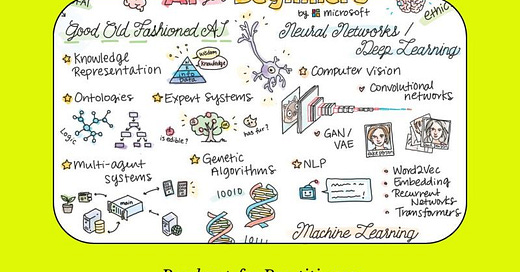 by microsoft
ethic
Good Old Fashioned AI
Neural Networks /
Deep Learning
Knowledge
Representation
wisdom
Knowledge
info
Data
Computer Vision
Convolutional
networks
Ontologies
Expert Systems
Logic
is edible?
has fur?
GAN/
VAE
Multi-agent
systems
Genetic
Algorithms
NLP
main
10010
Word2Vec
Embedding
Recurrent
Networks
Transformers
Machine Learning